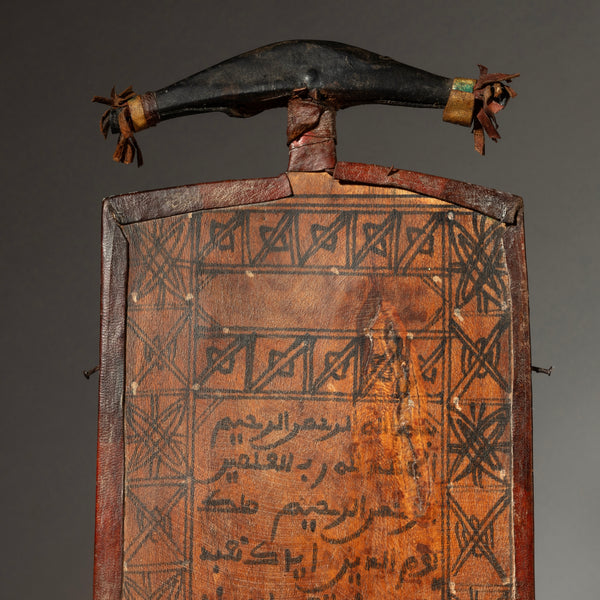 الله الرحمن الرحيم
لله رب العلمين
الرحمن الرحيم ملك
يوم الدين إياك نعبد